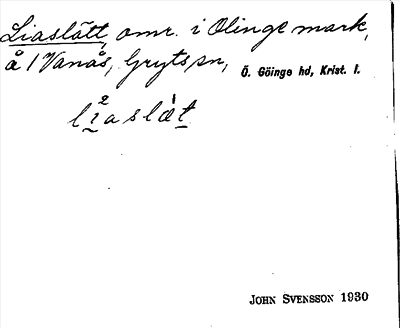 Liaslätt, omr. i Olinge mark,
å 1 Vanås, Gryts sn, Ö. Göinge hd, Krist. l.
JOHN SVENSSON 1930